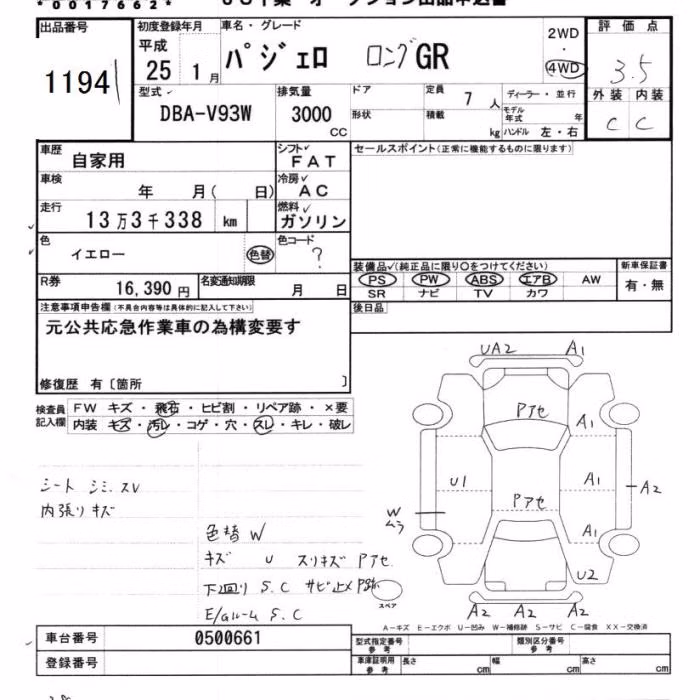 *0017662*
出品番号
1194
初度登録年月
平成
25 1月
車名・グレード
パジェロ ロングGR
2WD
・
4WD
評価点
3.5
外装 内装
C C
型式✓
DBA-V93W
排気量
3000
CC
ドア
形状
定員 7 人
積載 kg
ディーラー・並行
モデル年式 年
ハンドル 左・右
車歴
自家用
シフト✓
FAT
セールスポイント(正常に機能するものに限ります)
車検
年 月( 日)
冷房✓
AC
走行
13万3千338 km
燃料✓
ガソリン
色
イエロー 色替
色コード✓
?
装備品✓(純正品に限り○をつけてください)
新車保証書
PS PW ABS エアB AW
SR ナビ TV カワ
有・無
R券
16,390 円
名変通知期限
月 日
後日品
注意事項申告欄(不具合内容等は具体的に記入して下さい)
元公共応急作業車の為構変要す
修復歴 有〔箇所 〕
検査員
記入欄
FW キズ・飛石・ヒビ割・リペア跡・×要
内装 キズ・汚レ・コゲ・穴・スレ・キレ・破レ
シート シミ.スレ
内張りキズ
色替 W
キズ U スリキズ Pアセ
下回り S.C サビ止×P跡
E/gルーム S.C
UA2 A1
Pアセ
A1
U1
A1
A2
Pアセ
W
ムラ
A1
U2
スペア
A2 A2 A2
A-キズ E-エクボ U-凹み W-補修跡 S-サビ C-腐食 XX-交換済
車台番号
0500661
登録番号
型式指定番号
参考
類別区分番号
参考
車庫証明用
参考
長さ cm
幅 cm
高さ cm